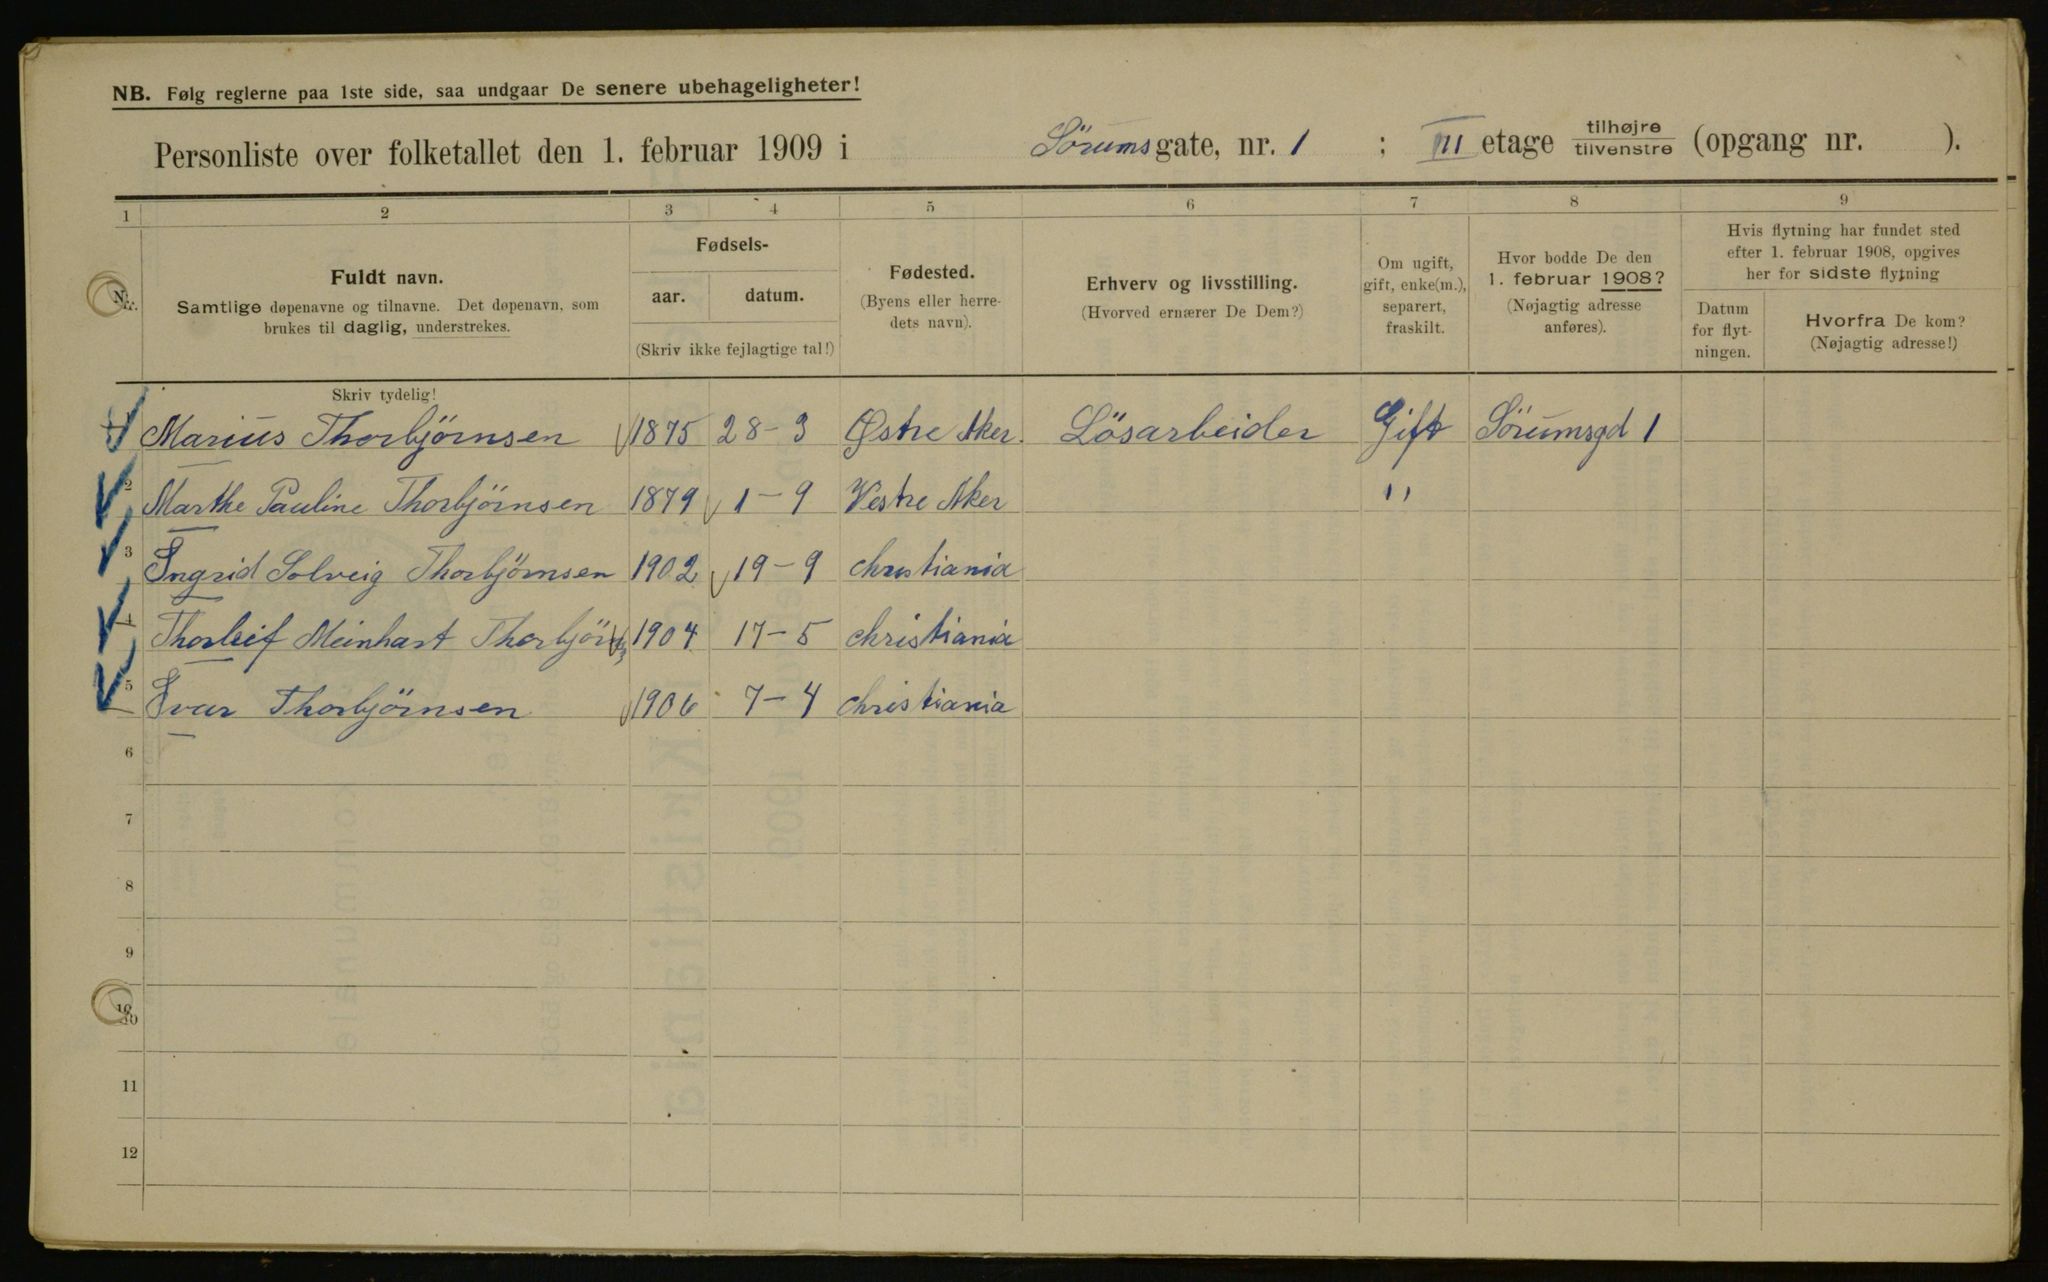 NB. Følg reglerne paa 1ste side, saa undgaar De senere ubehageligheter!
Personliste over folketallet den 1. februar 1909 i Sörumsgate, nr. 1 ; III etage tilhøjre tilvenstre (opgang nr. ).
1 2 3 4 5 6 7 8 9
Nr.
Fuldt navn.
Samtlige døpenavne og tilnavne. Det døpenavn, som
brukes til daglig, understrekes.
Skriv tydelig!
Fødsels-
aar. datum.
(Skriv ikke fejlagtige tal!)
Fødested.
(Byens eller herre-
dets navn).
Erhverv og livsstilling.
(Hvorved ernærer De Dem?)
Om ugift,
gift, enke(m.),
separert,
fraskilt.
Hvor bodde De den
1. februar 1908?
(Nøjagtig adresse
anføres).
Hvis flytning har fundet sted
efter 1. februar 1908, opgives
her for sidste flytning
Datum
for flyt-
ningen.
Hvorfra De kom?
(Nøjagtig adresse!)
Marius Thorbjörnsen 1875 28-3 Østre Aker. Lösarbeider Gift Sörumsgd 1
2 Marthe Pauline Thorbjörnsen 1879 1-9 Vestre Aker "
3 Ingrid Solveig Thorbjörnsen 1902 19-9 christiania
4 Thorleif Meinhart Thorbjörns 1904 17-5 christiania
5 Ivar Thorbjörnsen 1906 7-4 christiania
6
7
8
9
10
11
12